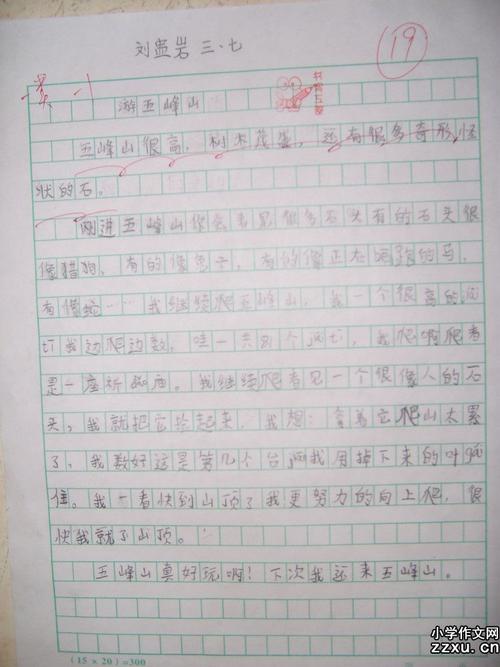 刘 岩 三.七
19
游五峰山
五峰山很高，树木茂盛，还有很多奇形怪
状的石。
刚进五峰山你会看见很多石头有的石头很
像猎狗，有的像兔子，有的像正在 跑的马，
有像蛇……我继续爬五峰山，我一个很高的
我边爬边数，哇一共 个 ，我爬啊爬看
是一座 庙。我继续爬看见一个很像人的石
头，我就把它捡起来，我想：拿着它爬山太累
了，我数好这是第几个台 我用掉下来的叶
住。我一看快到山顶了我更努力的向上爬，很
快我就了山顶。
五峰山真好玩啊！下次我还来五峰山。
(15×20)=300
小学作文网
zzxu.cn